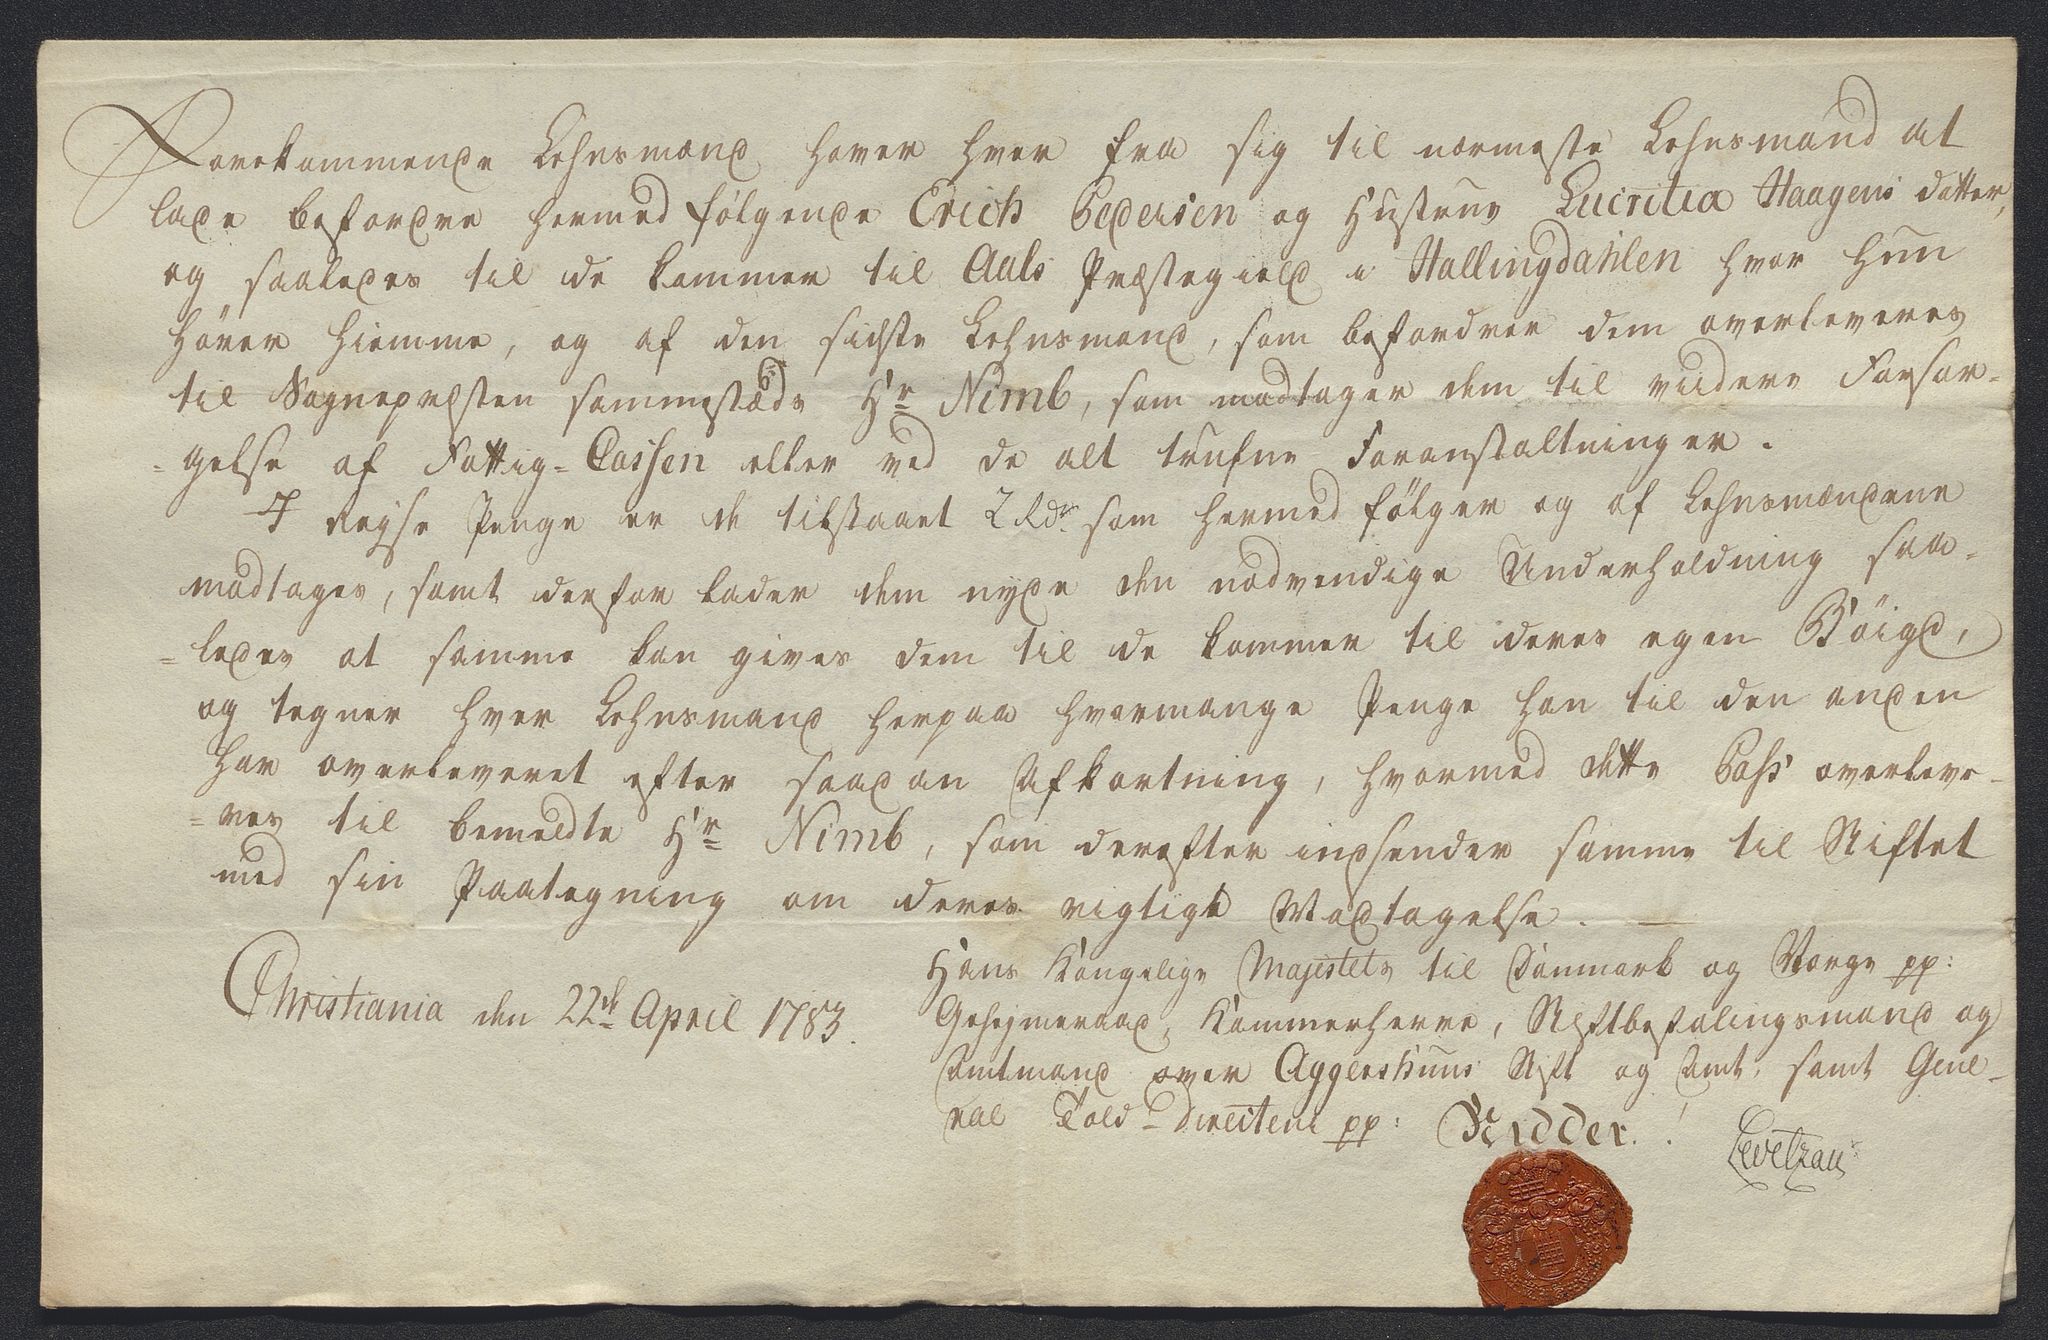 Forekommende Lehnsmænd haver hver fra sig til nærmeste Lehnsmand at
lade befordre hermed følgende Erich Pedersen og Hustrue Lucritia Haagens datter,
og saaledes til de kommer til Aals Præstegield i Hallingdahlen hvor hun
hører hiemme, og af den sidste Lehnsmand, som befordrer dem overleveres
til Sognepræsten sammestæds Hr Nimb, som modtager dem til viidere Forsør-
-gelse af Fattig-Cassen eller ved de alt trufne Foranstaltninger.
I Reyse Penge er de tilstaaet 2 Rdr som hermed følger og af Lehnsmændene
modtages, samt derfor lader dem nyde den nødvendige Underholdning saa-
=ledes at samme kan gives dem til de kommer til deres egen Bøigd,
og tegner hver Lehnsmand herpaa hvormange Penge han til den anden
har overleveret efter saadan Afkortning, hvormed dette Pass overleve-
=res til bemeldte Hr Nimb, som derefter indsender samme til Stiftet
med sin Paategning om deres rigtige Modtagelse.
Christiania den 22de April 1783.
Hans Kongelige Majestets til Danmark og Norge pp:
Gehejmeraad, Kammerherre, Stiftbefalingsmand og
Amtmand over Aggershuus Stift og Amt, samt Gene-
ral Told-Directeur pp: Ridder.
Levetzau